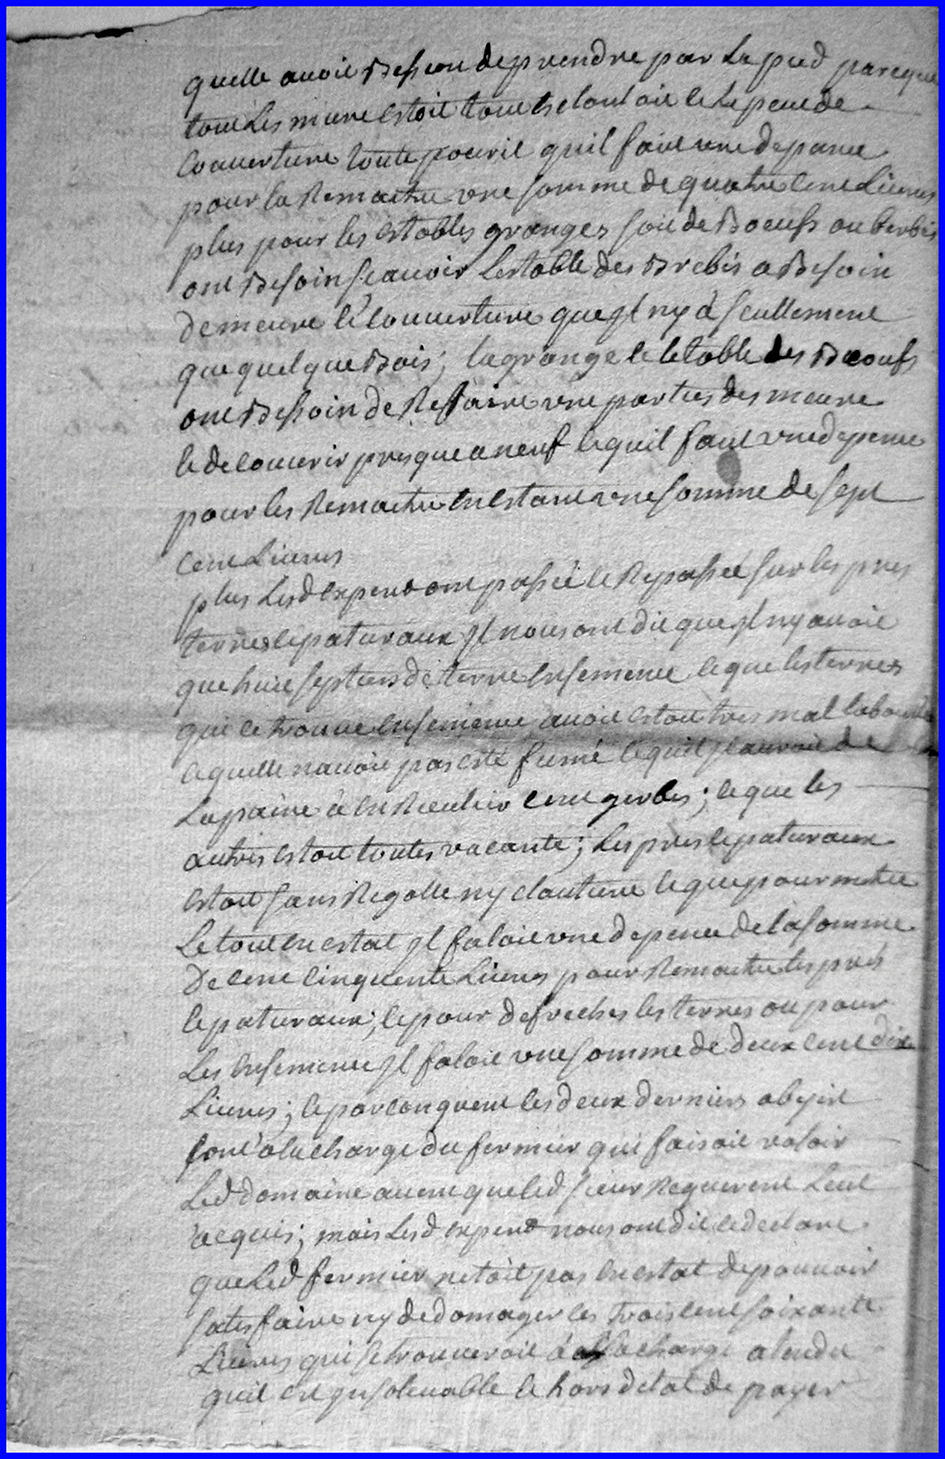 quelle avoit Besion de prendre par Le pied parceque
tout Les mure estoit tout et le peu de
Couverture toute pourit quil faut une depance
pour la Remaitre une somme de quatre Cent Livres
plus pour les estables granges soit de Boeufs ou berbis
ont Besoin scauoir Lestable des Brebis a Besoin
de meure et Couuerture que jl ny a seullement
que quelque Bois; la grange et letable des Bœoufs
ont Bessoin de Reffaire une parties des meure
et de couurir presque a neuf et quil faut vne depence
pour les Remaitre en estant une somme de sept
Cent Liures
plus Lesd expert ont passéé et Repasséé sur les pres
terres et paturaux jl nous ont dit que jl ny auoit
que huit septiers de terre ensemencé et que les terres
qui ce trouue ensemencé auoit estoit tres mal labouré
et quelle nauoit pas esté fumé et quil jl auroit de
La paine à en Receulir cent gerbes; et que les
autres estoit toutes vacante; Les pres et paturaux
estoit sans Regolle ny clouture et que pour metre
Le tout en estat jl faloit vne depence de la somme
De cent cinquente Liures pour Remaitre les prés
et paturaux; et pour defrecher les terres ou pour
Les ensemence jl faloit vne somme de deux cent dix
Liures; et par conquent les deux derniers obyest
sont a la charge du fermier qui faisoit valoir
Led domaine que led sieur Requerent Leut
acquis; mais Lesd expert nous ont dit et declare
que Led fermier netoit pas en estat de pouuoir
satesfaire ny dedomager les trois cent soixante
Liures qui se trouueroit à sa charge atendu
quil est jnsoluable et hors detat de payer